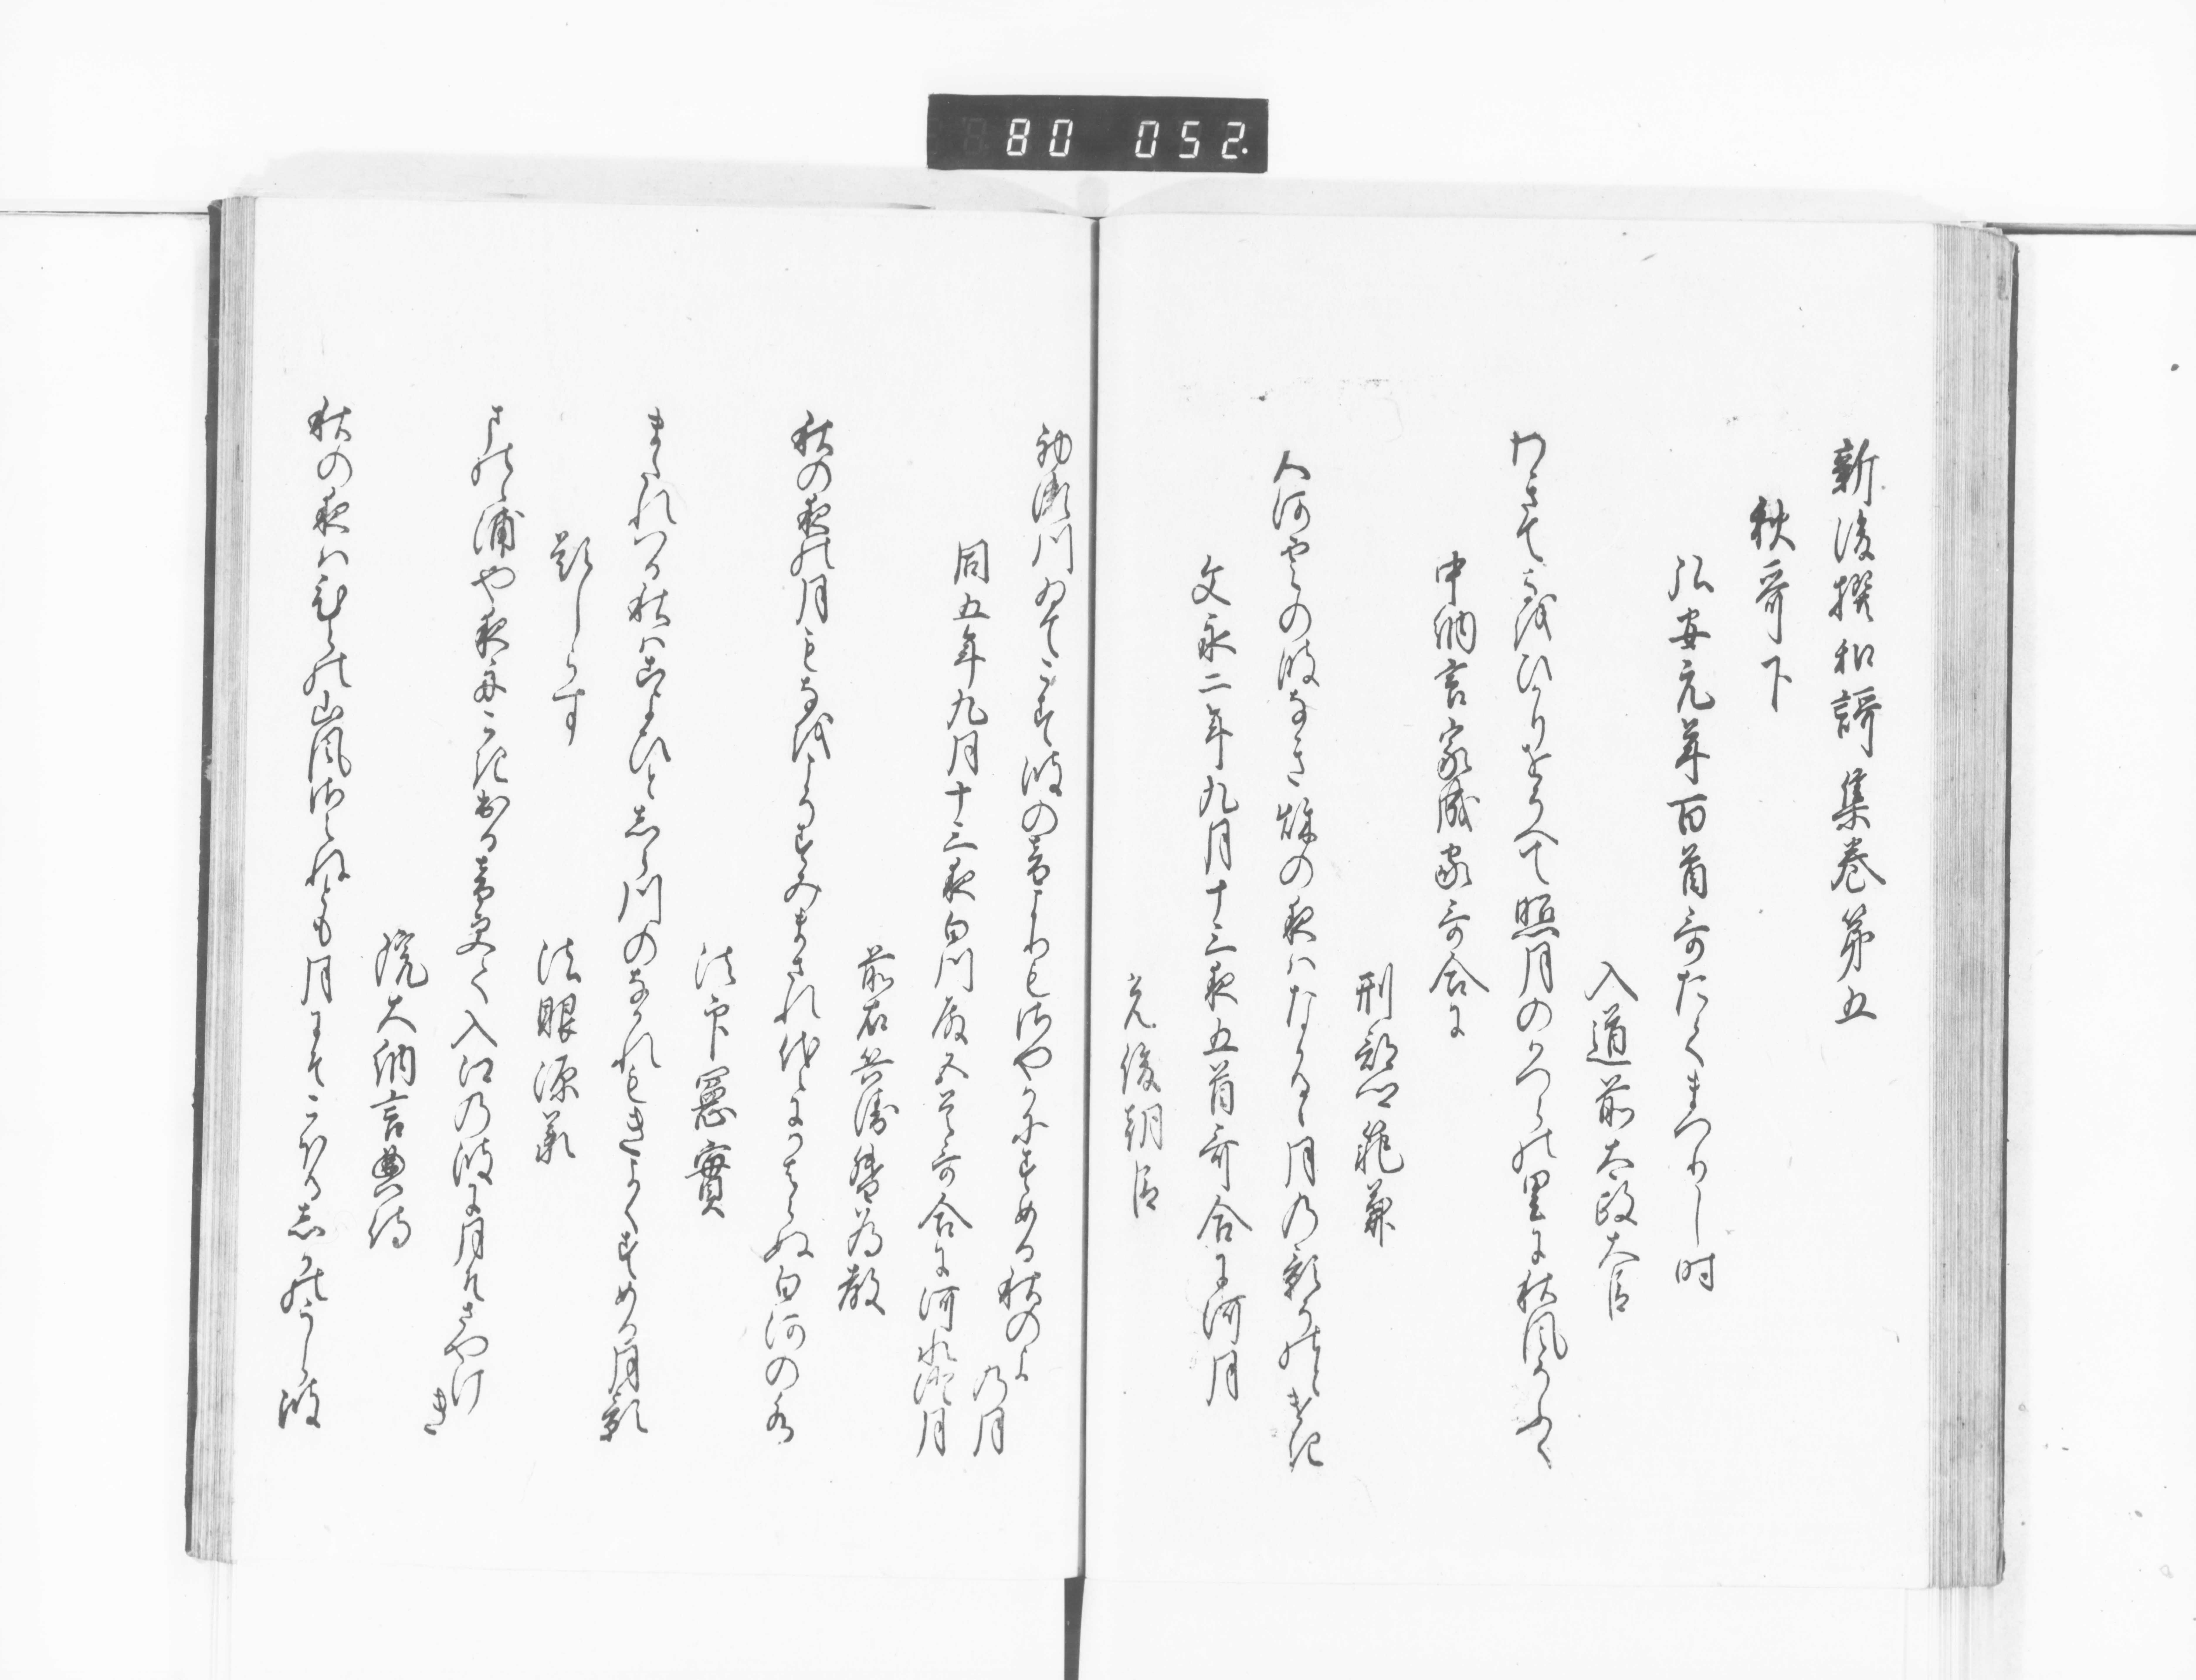 80 052.
新後撰和謌集巻第五
秋哥下
弘安元年百首哥たてまつりし時
入道前太政大臣
わきてなをひかりをそへて照月のかつらの里に秋風そふく
中納言家成家哥合に
刑部卿範兼
人はやとの波なき秋の夜はなかるゝ月の影そのとけき
文永二年九月十三夜五首哥合に河月
光俊朝臣
初瀬川ゐてこす波の音よりもさやかにすめる秋のよの月
同五年九月十三夜白川殿五首哥合に河水澄月
前右兵衛督為教
秋の夜の月もなをこそすみまされ代々にかはらぬ白河の水
法印憲實
またれつる秋はこよひと白川のなかれもきよくすめる月影
題しらす
法眼源承
さ の浦や夜舟こき出る音更て入江の波に月そさやけき
院大納言典侍
秋の夜はむらの山風さえねとも月にそこほるしかのうら波